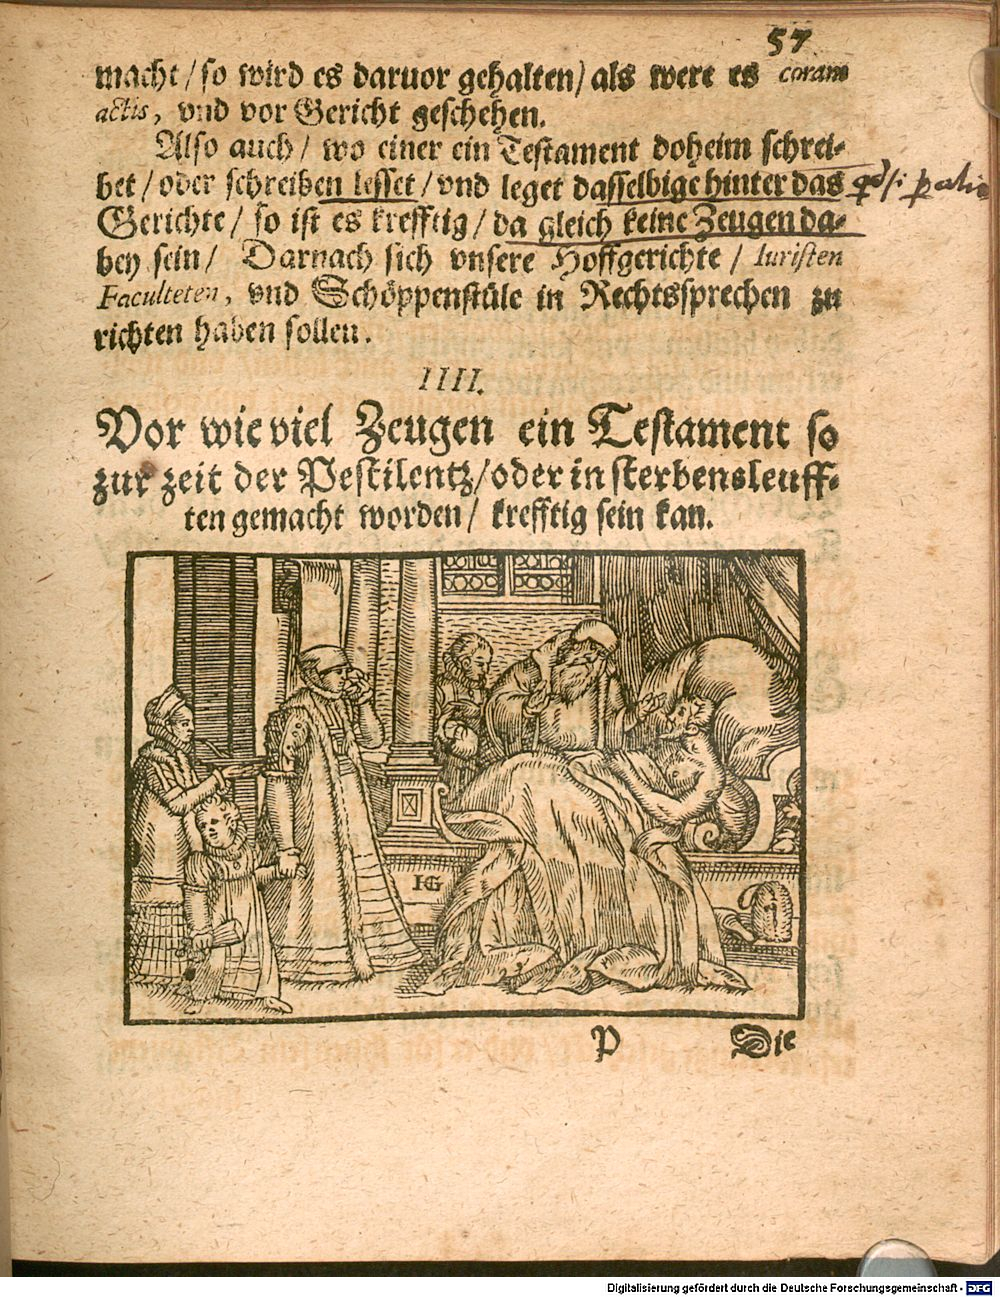 57
macht / so wird es daruor gehalten / als were es coram
actis, vnd vor Gericht geschehen.
Also auch / wo einer ein Testament doheim schrei-
bet / oder schreiben lesset / vnd leget dasselbige hinter das
Gerichte / so ist es krefftig / da gleich keine Zeugen da-
bey sein / Darnach sich vnsere Hoffgerichte / Iuristen
Faculteten, vnd Schöppenstüle in Rechtssprechen zu
richten haben sollen.
IIII.
Vor wie viel Zeugen ein Testament so
zur zeit der Pestilentz / oder in sterbensleuff-
ten gemacht worden / krefftig sein kan.
IG
P Die
Digitalisierung gefördert durch die Deutsche Forschungsgemeinschaft - DFG